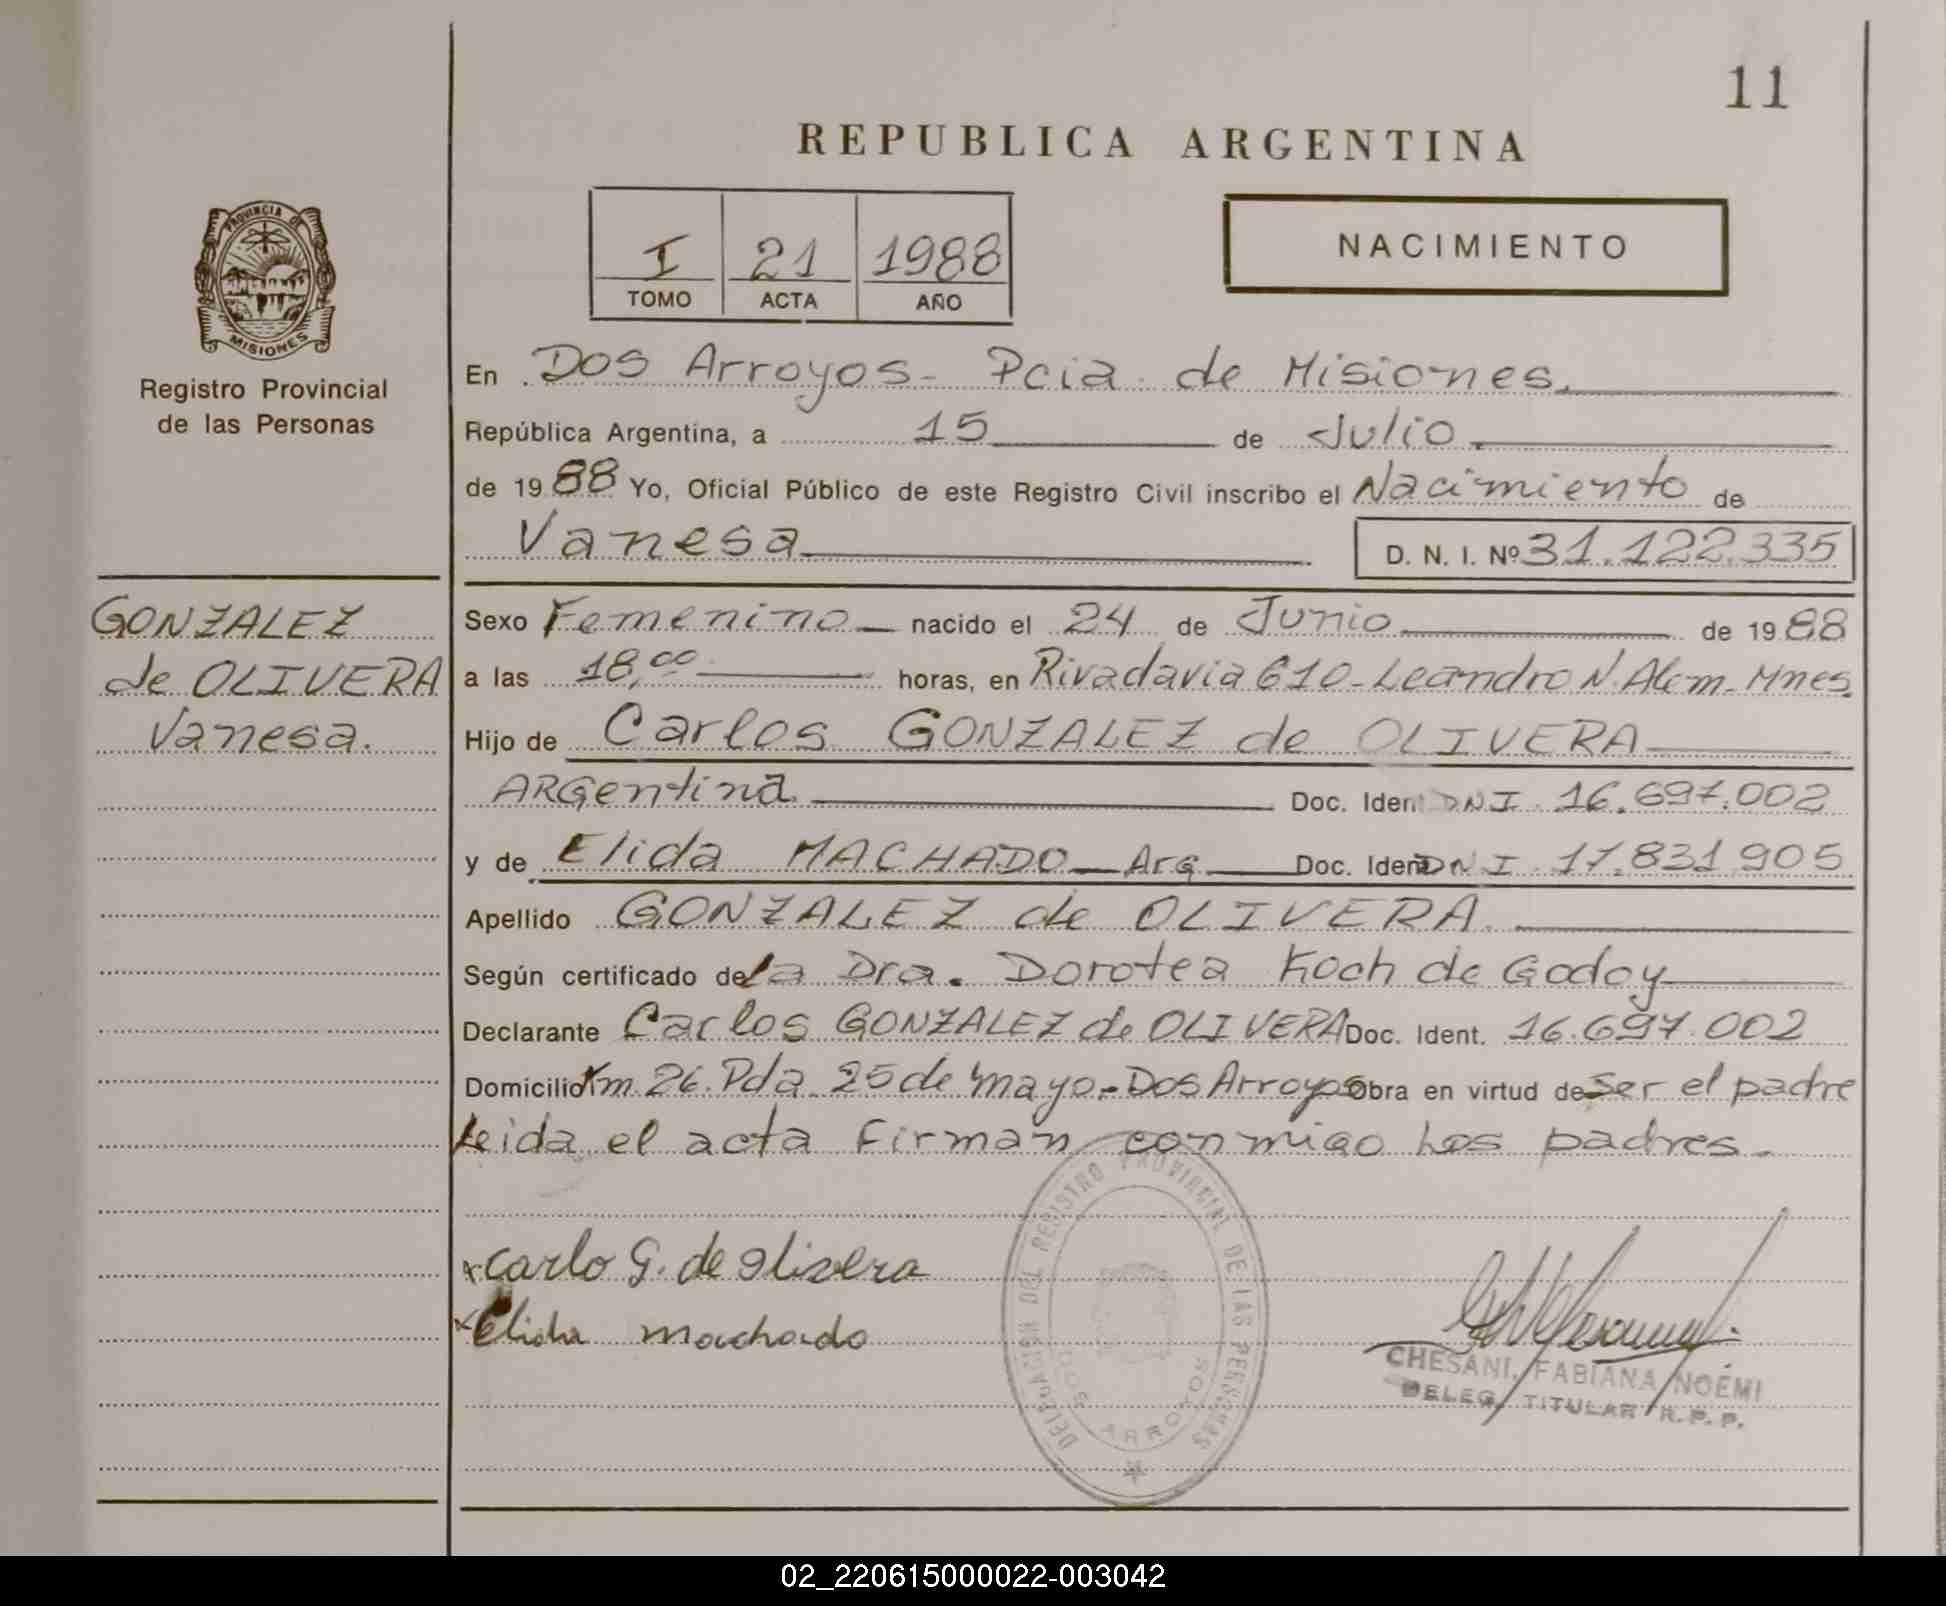 11
REPUBLICA ARGENTINA
I 21 1988
TOMO ACTA AÑO
NACIMIENTO
PROVINCIA DE
MISIONES
Registro Provincial
de las Personas
En Dos Arroyos - Pcia de Misiones.
República Argentina, a 15 de Julio
de 1988 Yo, Oficial Público de este Registro Civil inscribo el Nacimiento de
Vanesa D. N. I. Nº 31.122.335
GONZALEZ
de OLIVERA
Vanesa.
Sexo Femenino nacido el 24 de Junio de 1988
a las 18,00 horas, en Rivadavia 610 - Leandro N. Alem - Mnes.
Hijo de Carlos GONZALEZ de OLIVERA
ARGentina Doc. Iden DNI 16.697.002
y de Elida MACHADO - Arg Doc. Ident DNI 17.831.905
Apellido GONZALEZ de OLIVERA.
Según certificado de la Dra. Dorotea Koch de Godoy
Declarante Carlos GONZALEZ de OLIVERA Doc. Ident. 16.697.002
Domicilio Km. 26. Pda. 25 de mayo - Dos Arroyos Obra en virtud de Ser el padre
Leida el acta Firman conmigo Los padres.
DELEGACION DEL REGISTRO PROVINCIAL DE LAS PERSONAS
DOS ARROYOS
Carlo G. de Olivera
Elida Machado
CHESANI, FABIANA NOEMI
DELEG. TITULAR R. P. P.
02_220615000022-003042